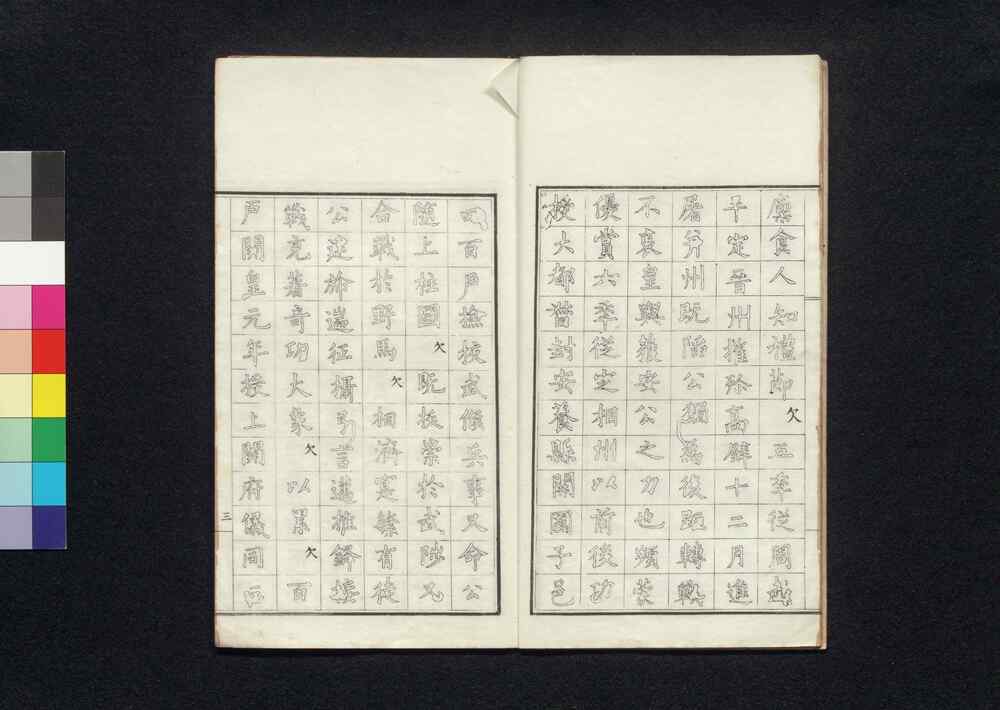 廩食人知禮節欠五年從周武
平定晉州摧殄高壁十二月進
屠并州既陷公獨爲後距轉戰
不衰皇輿獲安公之力也頻蒙
優賞六年從定相州以前後功
授大都督封安養縣開國子邑
四百戶撿挍武候兵事又命公
隨上柱國欠既崇於武陟又
合戰於野馬欠相濟寔繁有徒
公建旆遄征攝弓言邁推鋒接
戰克著奇功大象欠以累欠百
戶開皇元年授上開府儀同
三